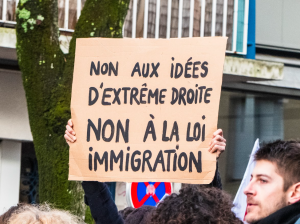 NON AUX IDÉES
D'EXTRÊME DROITE
NON À LA LOI
IMMIGRATION